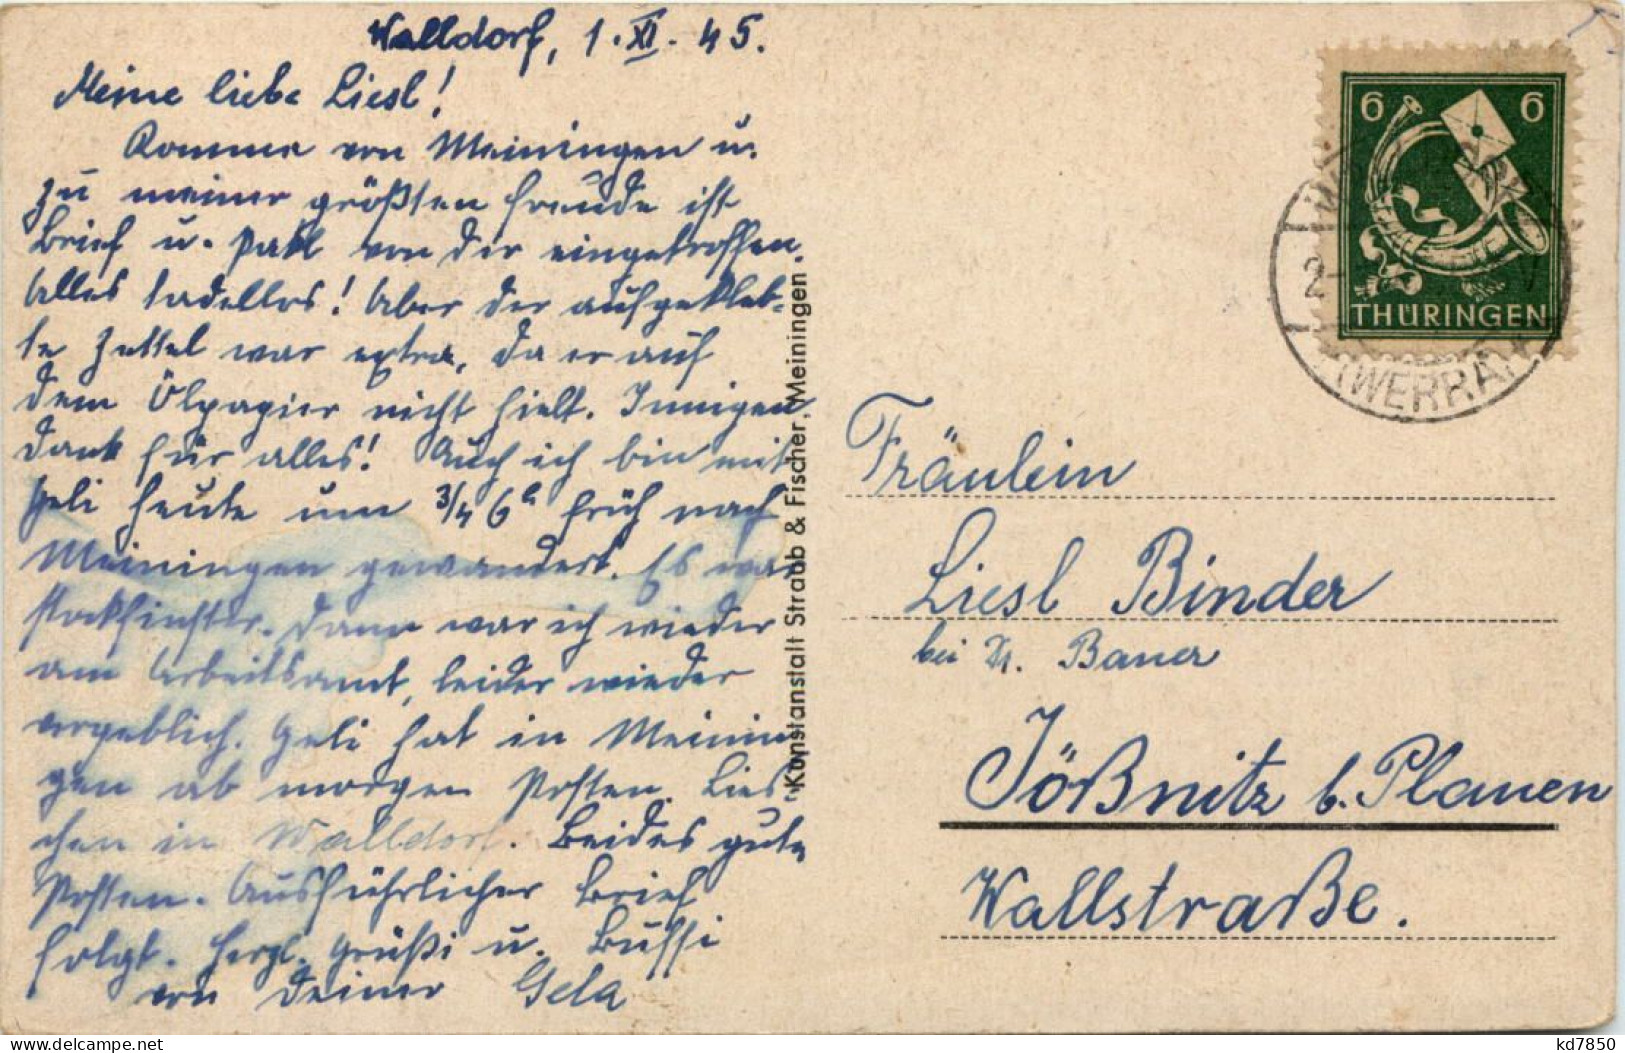 Walldorf, 1. XI. 45.
Meine liebe Liesl!
Komme von Meiningen u.
zu meiner größten Freude ist
Brief u. Pakl von dir eingetroffen.
Alles tadellos! Aber der aufgekleb-
te Zettel war extra, da er auf
dem Ölpapier nicht hielt. Innigen
Dank für alles! Auch ich bin mit
Geli heute um 3/4 6h früh nach
Meiningen gewandert. Es war
stockfinster. Dann war ich wieder
am Arbeitsamt, leider wieder
vergeblich. Geli hat in Meinin-
gen ab morgen Posten. Lies-
chen in Walldorf. Beides gute
Posten. Ausführlicher Brief
folgt. Herzl. Grüßi u. Bussi
von Deiner Gela
Kunstanstalt Straub & Fischer, Meiningen
6 6
THÜRINGEN
(WERRA)
Fräulein
Liesl Binder
bei Dr. Bauer
Jößnitz b. Plauen
Wallstraße.
delcampe.net
kd7850